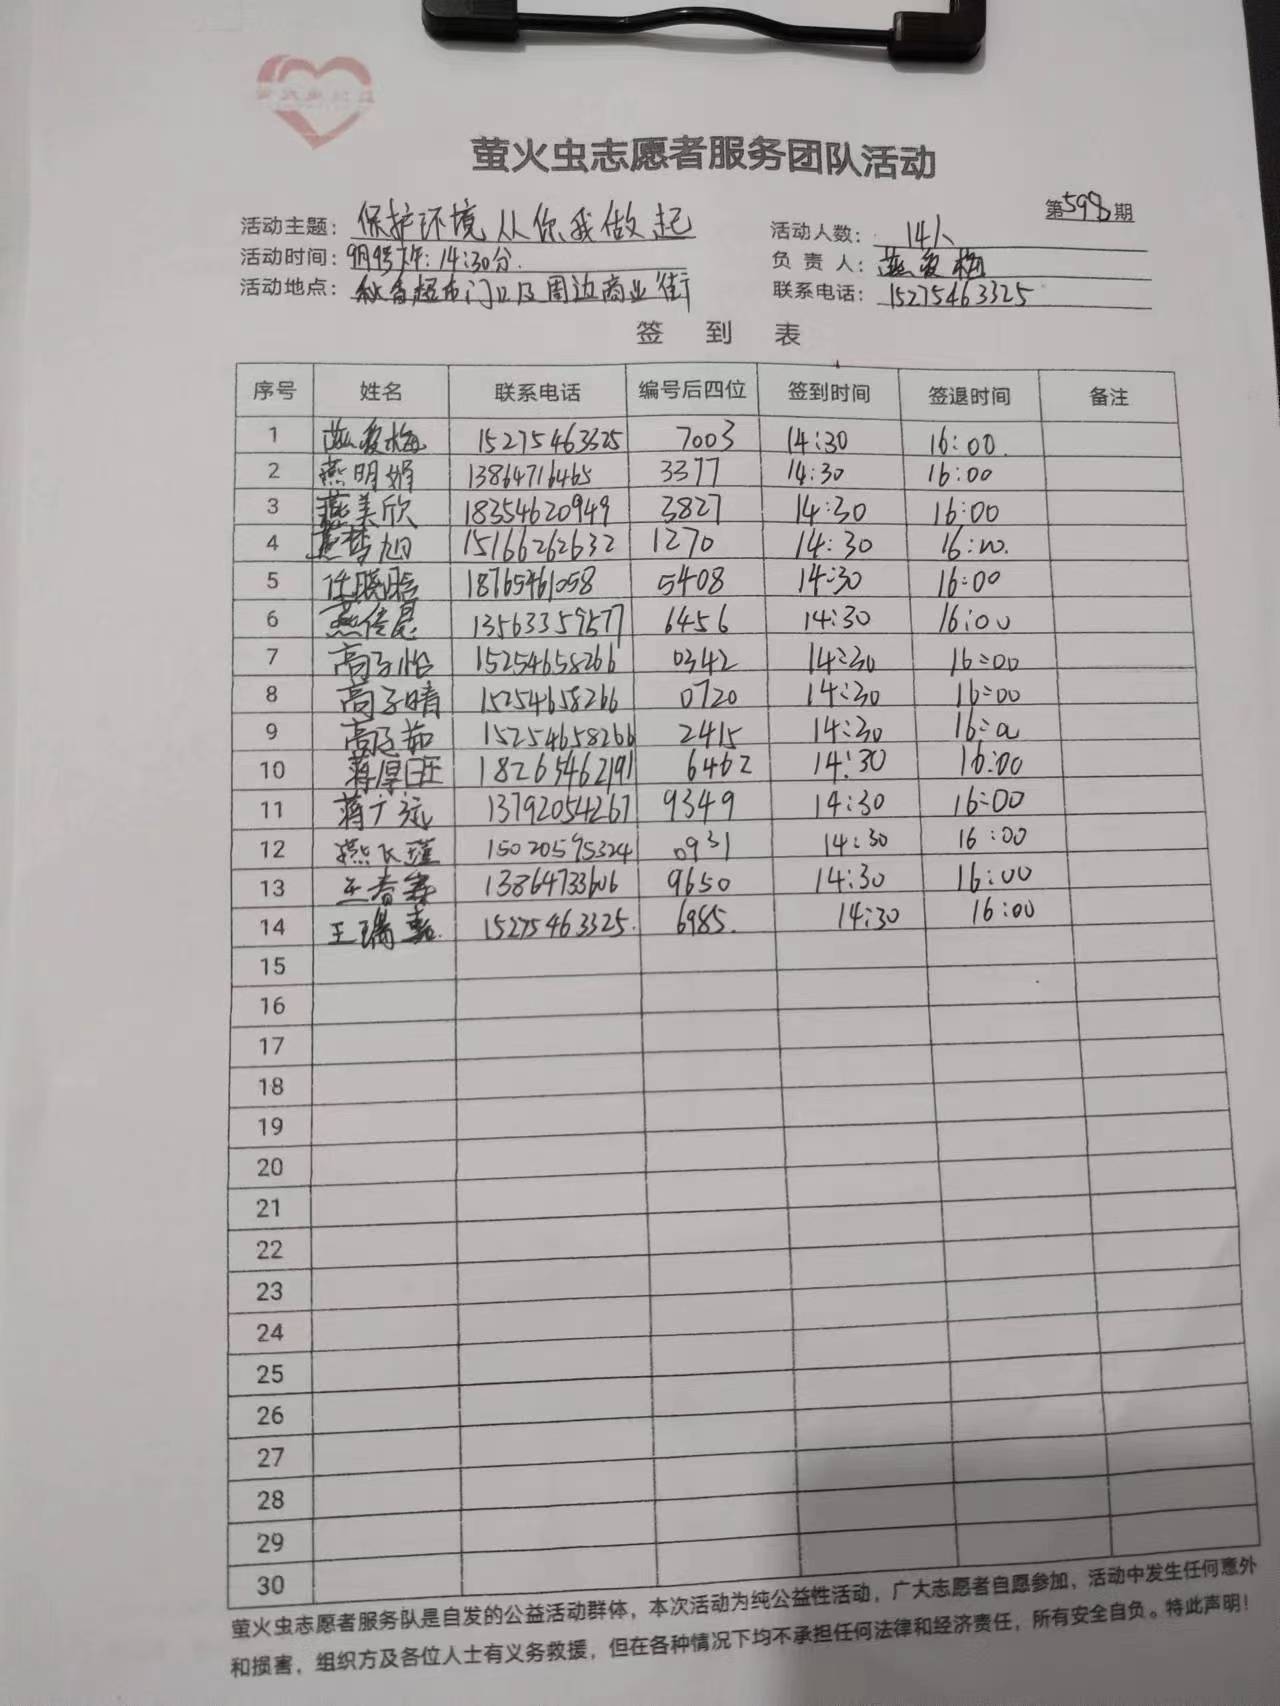 萤火虫志愿者服务团队活动
第598期
活动主题：保护环境从你我做起 活动人数：14人
活动时间：9月9号下午：14:30分. 负责人：燕爱梅
活动地点：秋香超市门口及周边商业街 联系电话：15275463325
签到表
序号 姓名 联系电话 编号后四位 签到时间 签退时间 备注
1 燕爱梅 15275463325 7003 14:30 16:00.
2 燕明娟 13864716465 3377 14:30 16:00
3 燕美欣 18354620949 3827 14:30 16:00
4 燕梦旭 15166262632 1270 14:30 16:00.
5 任晓晗 18765461058 5408 14:30 16:00
6 燕传晨 13563359577 6456 14:30 16:00
7 高子怡 15254658266 0342 14:30 16:00
8 高子晴 15254658266 0720 14:30 16:00
9 高子茹 15254658266 2415 14:30 16:00
10 蒋厚旺 18265462191 6462 14:30 16:00
11 蒋广远 13792054267 9349 14:30 16:00
12 燕飞 15020595324 0931 14:30 16:00
13 王春 13864733606 9650 14:30 16:00
14 王瑞嘉. 15275463325. 6985. 14:30 16:00
15
16
17
18
19
20
21
22
23
24
25
26
27
28
29
30
萤火虫志愿者服务队是自发的公益活动群体，本次活动为纯公益性活动，广大志愿者自愿参加，活动中发生任何意外
和损害，组织方及各位人士有义务救援，但在各种情况下均不承担任何法律和经济责任，所有安全自负。特此声明！